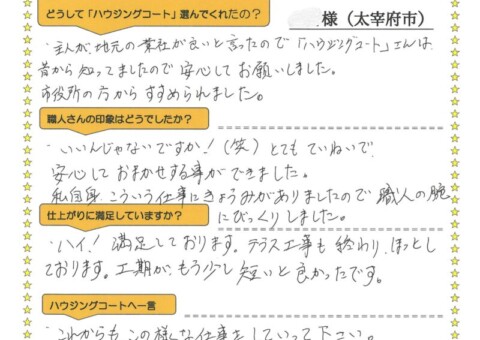 どうして「ハウジングコート」選んでくれたの？
様（太宰府市）
・主人が、地元の業社が良いと言ったので「ハウジングコート」さんは
昔から知ってましたので安心してお願いしました。
市役所の方からすすめられました。
職人さんの印象はどうでしたか？
・いいんじゃないですか！（笑）とてもていねいで、
安心しておまかせする事ができました。
私自身、こういう仕事にきょうみがありましたので職人の腕
にびっくりしました。
仕上がりに満足していますか？
・ハイ！満足しております。テラス工事も終わり、ほっとし
ております。工期が、もう少し短いと良かったです。
ハウジングコートへ一言
・これからもこの様な仕事をしていって下さい。